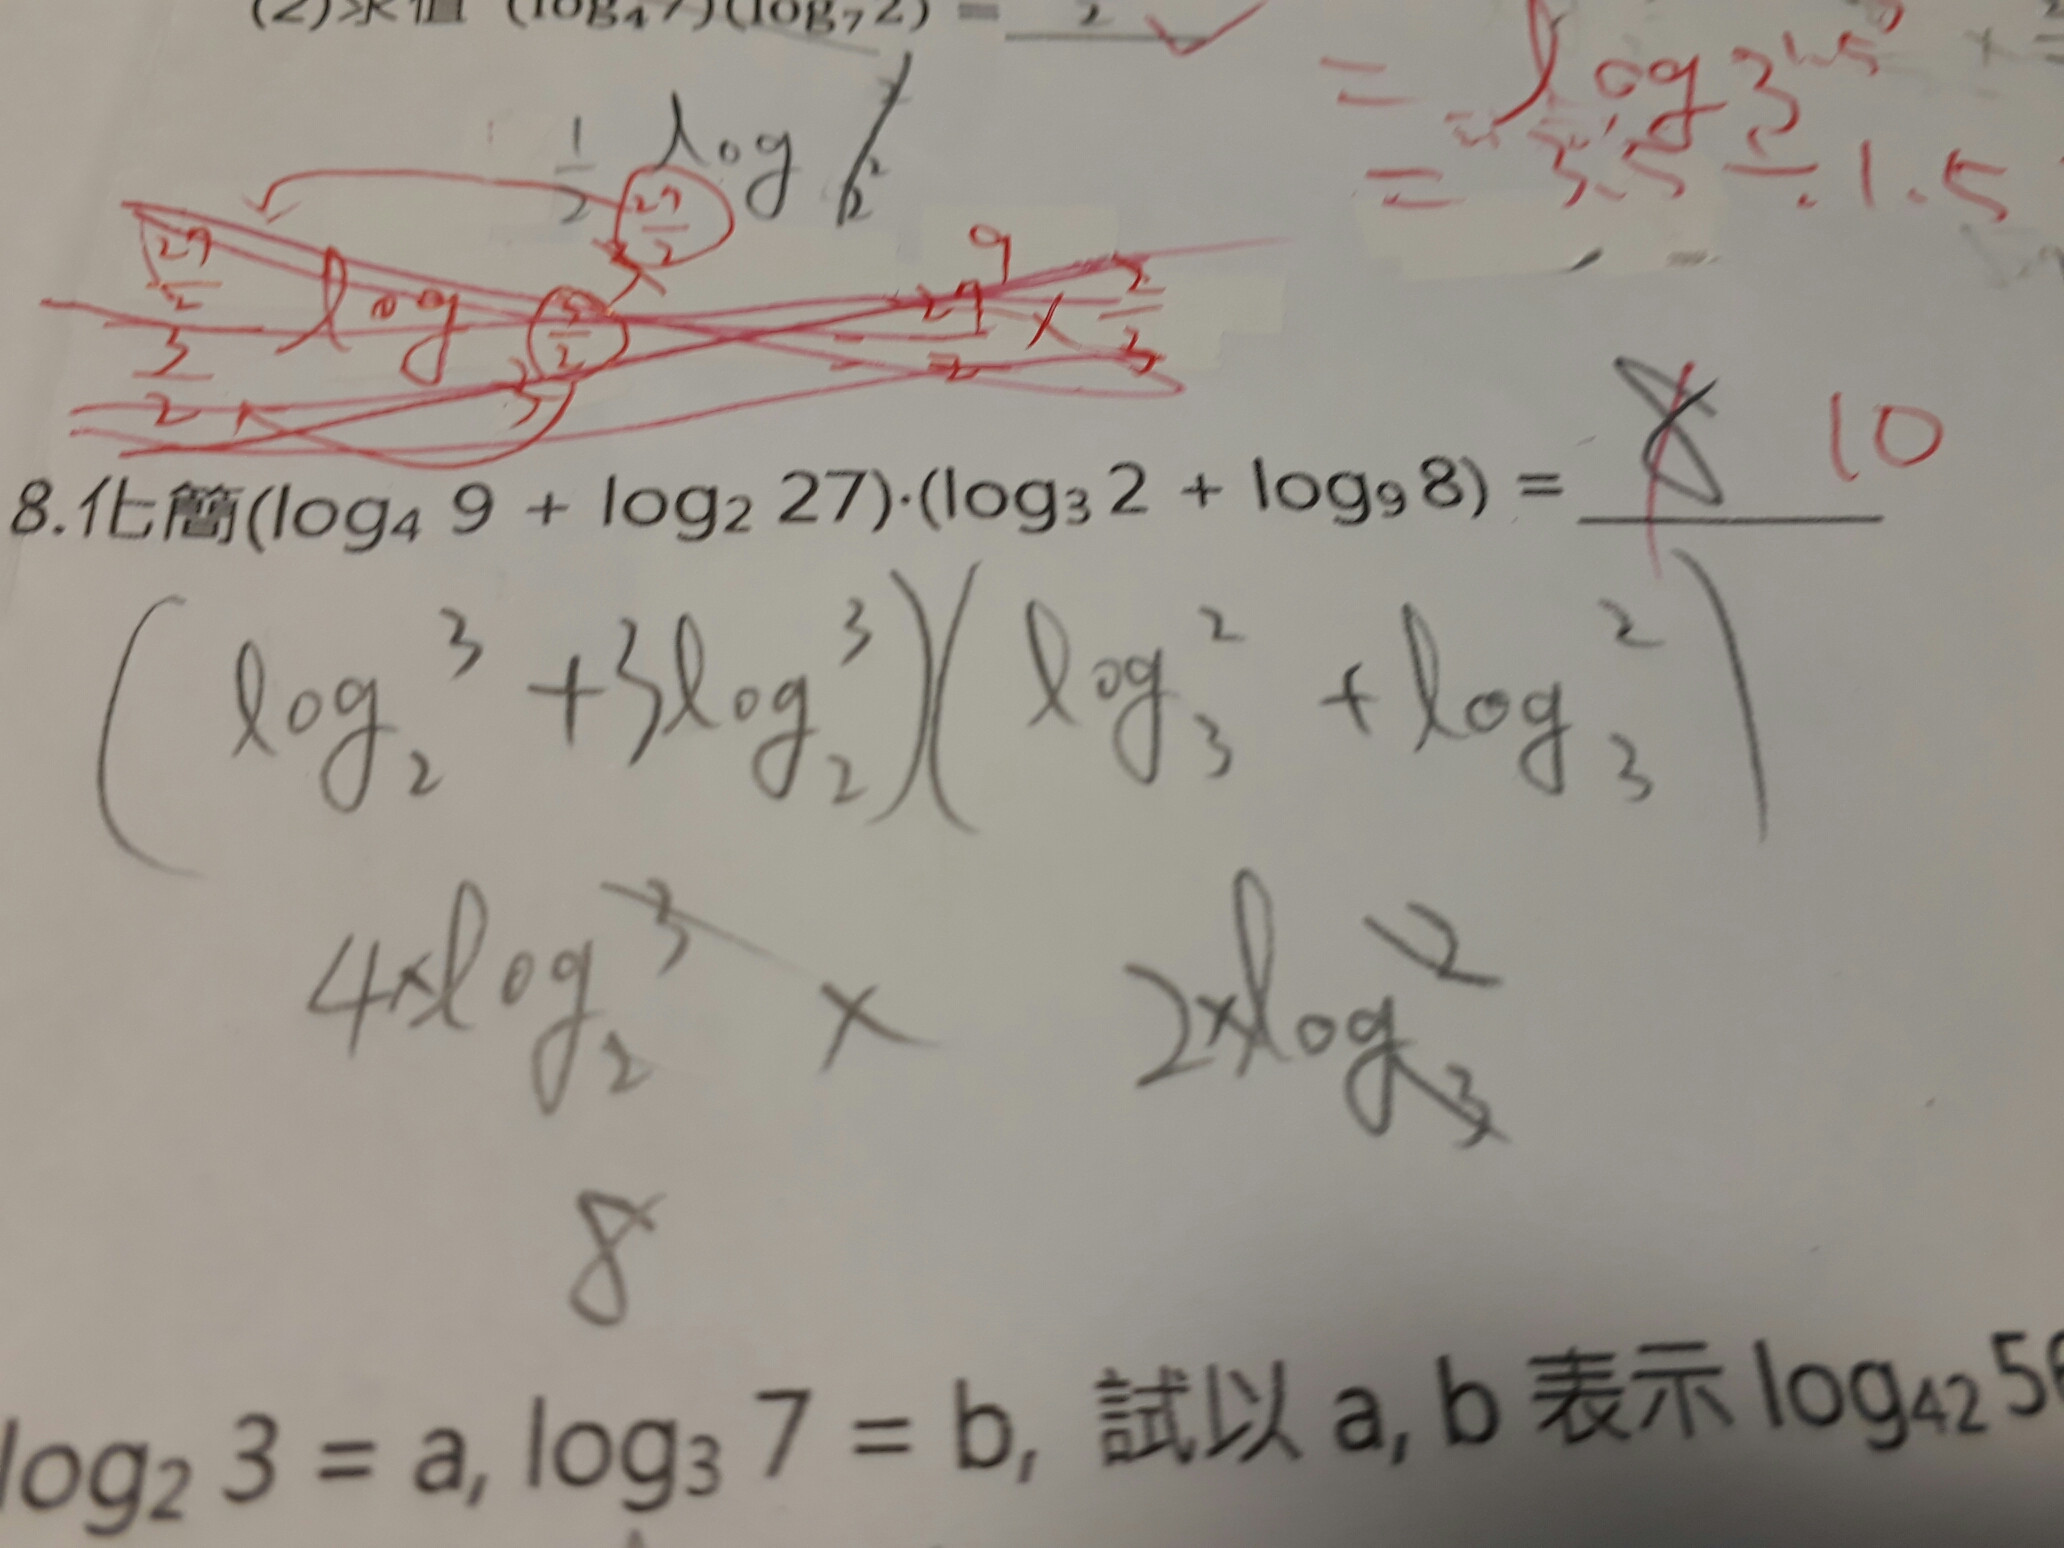 (2)求值 (log₄7)(log₇2) =
= log 3^1.5
= 3.5 ÷ 1.5
1/2 log
27/2
27/2 log 3/2
3/2
9
27/2 × 2/3
8.化簡(log₄ 9 + log₂ 27)·(log₃ 2 + log₉ 8) = 8 10
(log₂ 3 + 3log₂ 3)(log₃ 2 + log₃ 2)
4×log₂ 3 × 2×log₃ 2
8
log₂ 3 = a, log₃ 7 = b, 試以 a, b 表示 log₄₂ 56